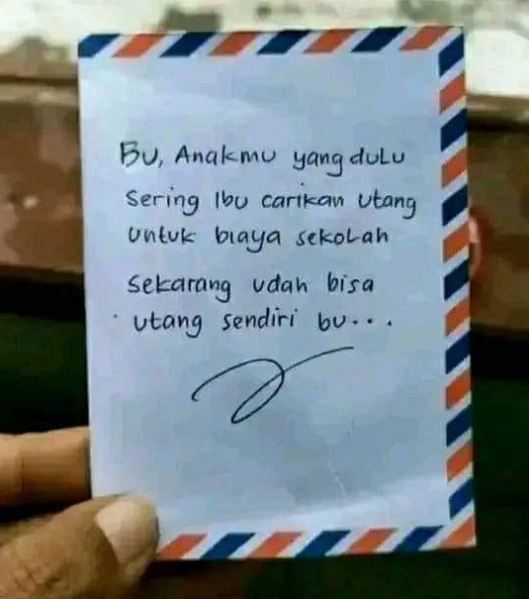 Bu, Anakmu yang dulu
sering Ibu carikan utang
untuk biaya sekolah
sekarang udah bisa
utang sendiri bu...